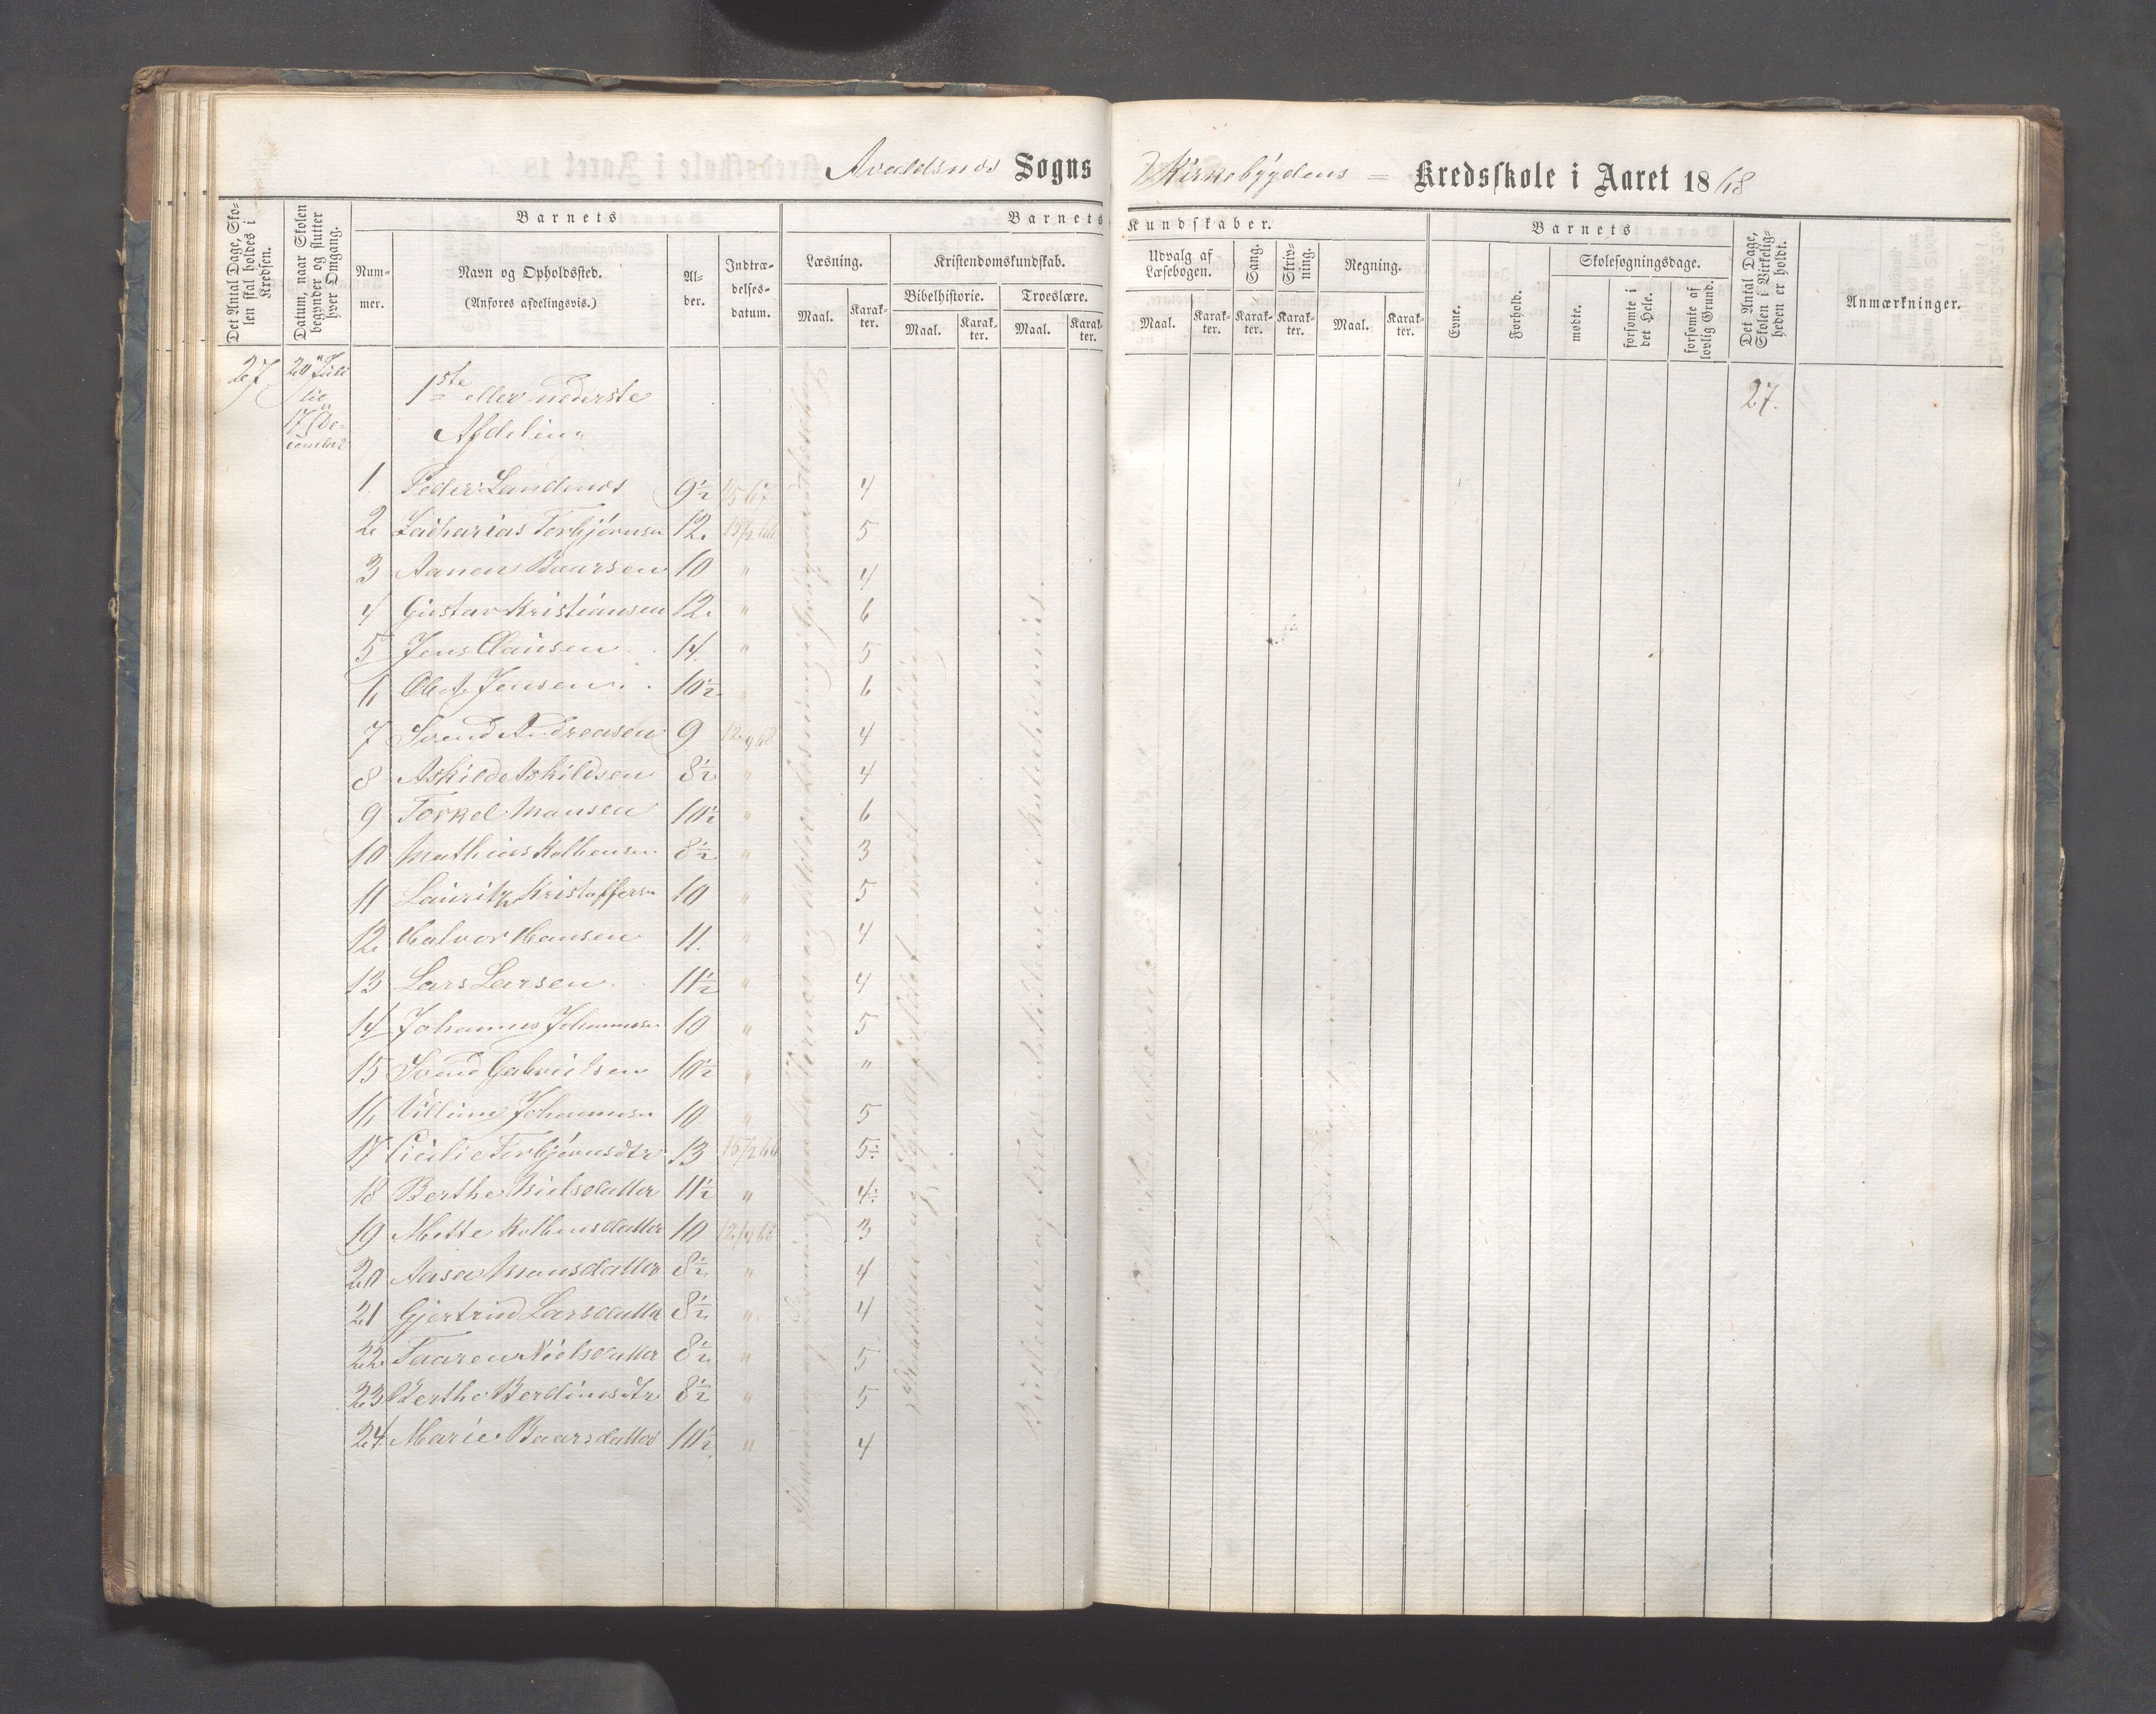 Avaldsnes Sogns Kirkebygdens Kredsskole i Aaret 1868
Det Antal Dage, Skolen skal holdes i Kredsen.
Datum, naar Skolen begynder og slutter hver Omgang.
Barnets
Nummer.
Navn og Opholdssted.
(Anføres afdelingsvis.)
Alder.
Indtrædelsesdatum.
Barnets Kundskaber.
Læsning.
Maal. Karakter.
Kristendomskundskab.
Bibelhistorie. Troeslære.
Maal. Karakter. Maal. Karakter.
Udvalg af Læsebogen.
Maal. Karakter.
Sang. Karakter.
Skrivning. Karakter.
Regning.
Maal. Karakter.
Barnets
Evne.
Forhold.
Skolesøgningsdage.
mødte.
forsømte i det Hele.
forsømte af lovlig Grund.
Det Antal Dage, Skolen i Virkeligheden er holdt.
Anmærkninger.
27 20 Juli til 17 December 1ste eller nederste 27.
Afdeling
1 Peder Landnes 9½ 4
2 Zacharias Torbjørnsen 12 5
3 Aanen Baarsen 10 " 4
4 Gustav Kristiansen 12 " 6
5 Jens Clausen 14 " 5
6 Olaf Jensen 10½ " 6
7 Svend Andreasen 9 4
8 Askild Askildsen 8½ " 4
9 Torkel Mansen 10½ " 6
10 Mathias Kolbensen 8½ " 3
11 Lauritz Kristoffersen 10 " 5
12 Halvor Hansen 11 " 4
13 Lars Larsen 11½ " 4
14 Johannes Johannesen 10 " 5
15 Svend Gabrielsen 10½ " "
16 Villum Johannesen 10 " 5
17 Cicilie Torbjørnsdtr 13 5÷
18 Berthe Nielsdatter 11½ " 4÷
19 Mette Kolbensdatter 10 3
20 Aasa Monsdatter 8½ " 4
21 Gjertrud Larsdatter 8½ " 4
22 Taaren Nielsdatter 8½ " 5
23 Berthe Berdinesdtr 8½ " 5
24 Marie Baarsdatter 10½ " 4